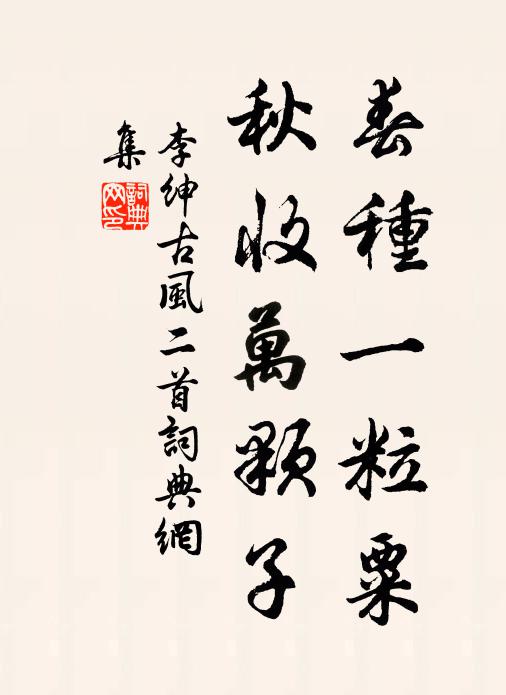 春種一粒粟
秋收萬顆子
李紳古風二首詞典網
集
詞典网印